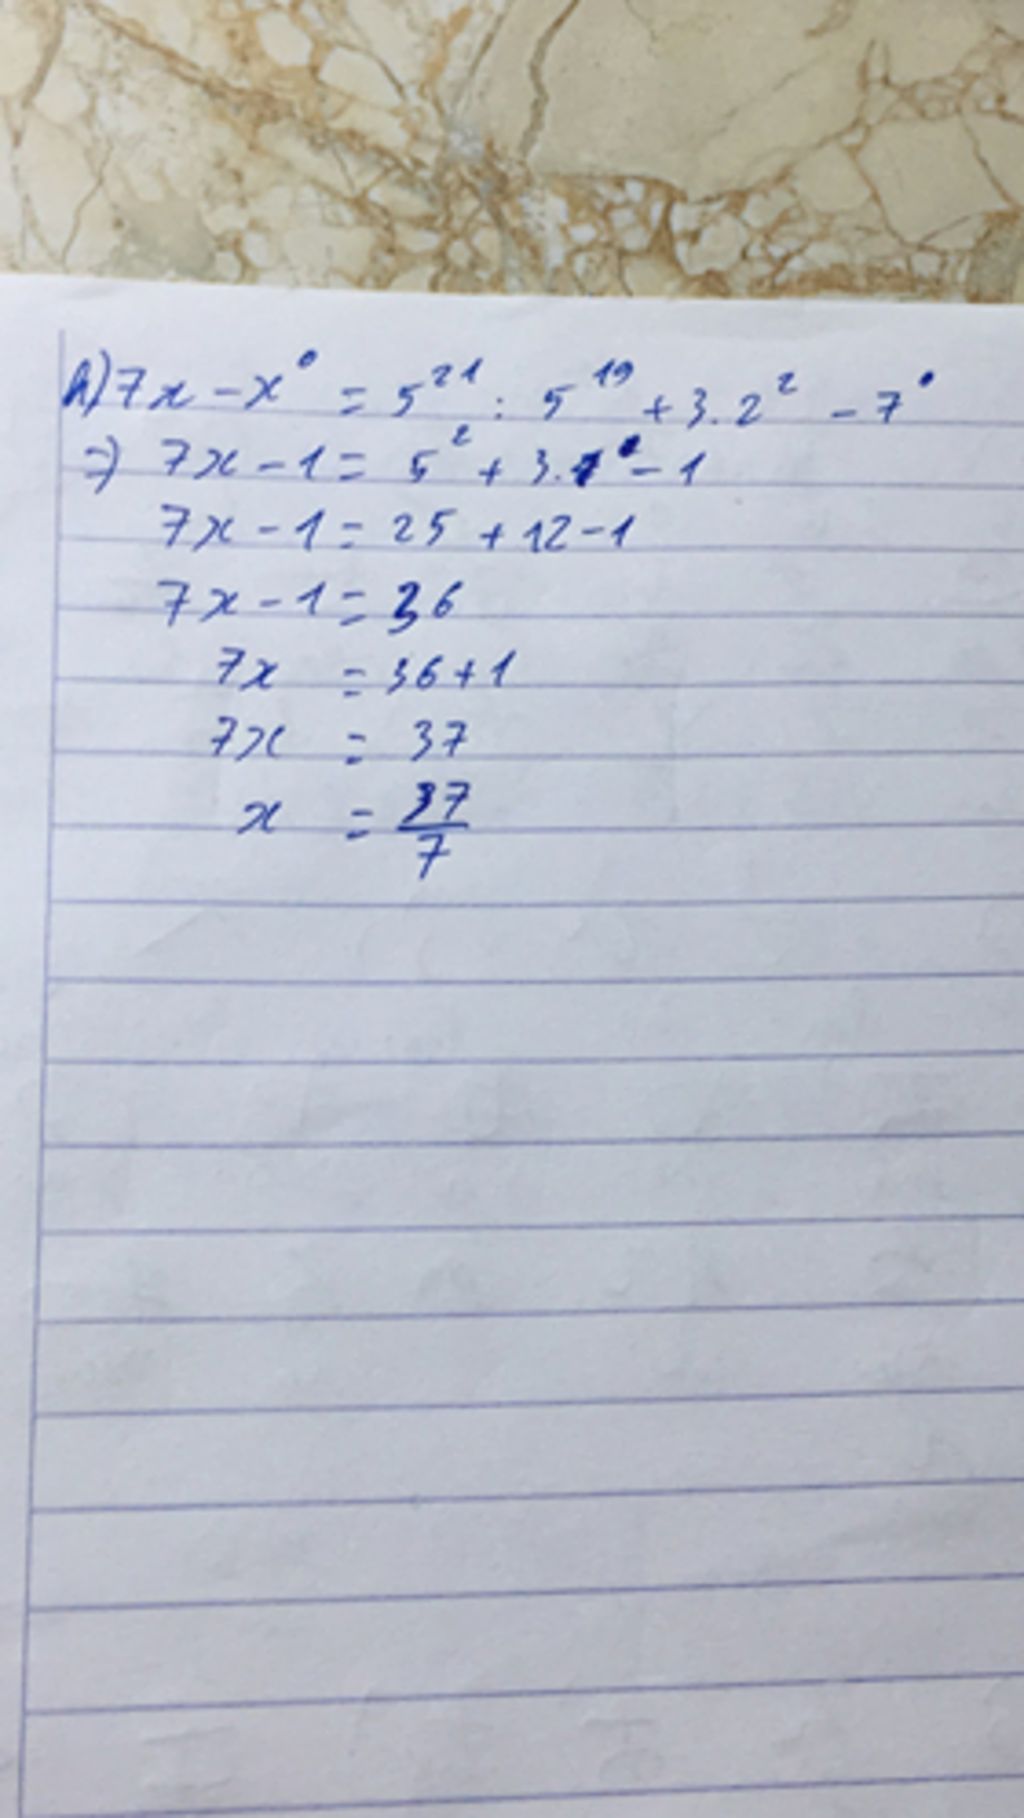 h) 7x - x⁰ = 5²¹ : 5¹⁹ + 3.2² - 7⁰
=> 7x - 1 = 5² + 3. - 1
7x - 1 = 25 + 12 - 1
7x - 1 = 36
7x = 36 + 1
7x = 37
x = 37/7